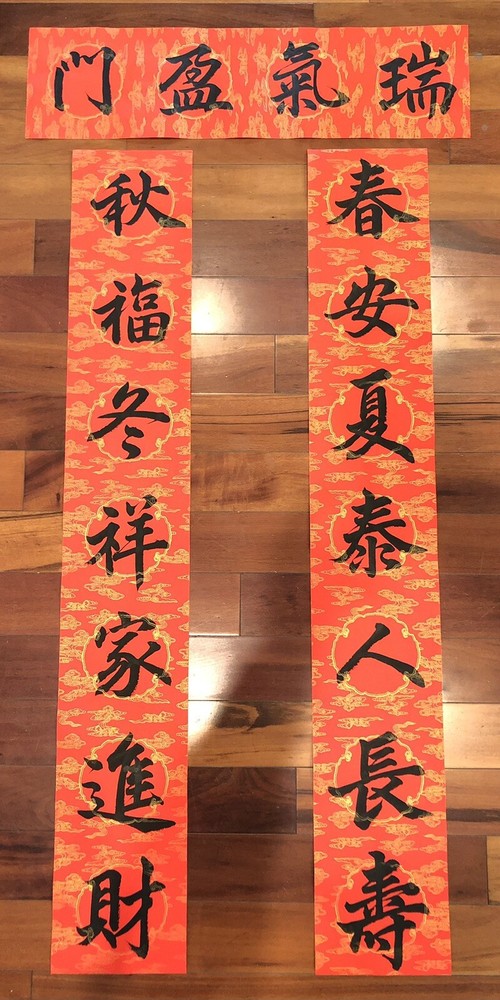 瑞氣盈門
春安夏泰人長壽
秋福冬祥家進財